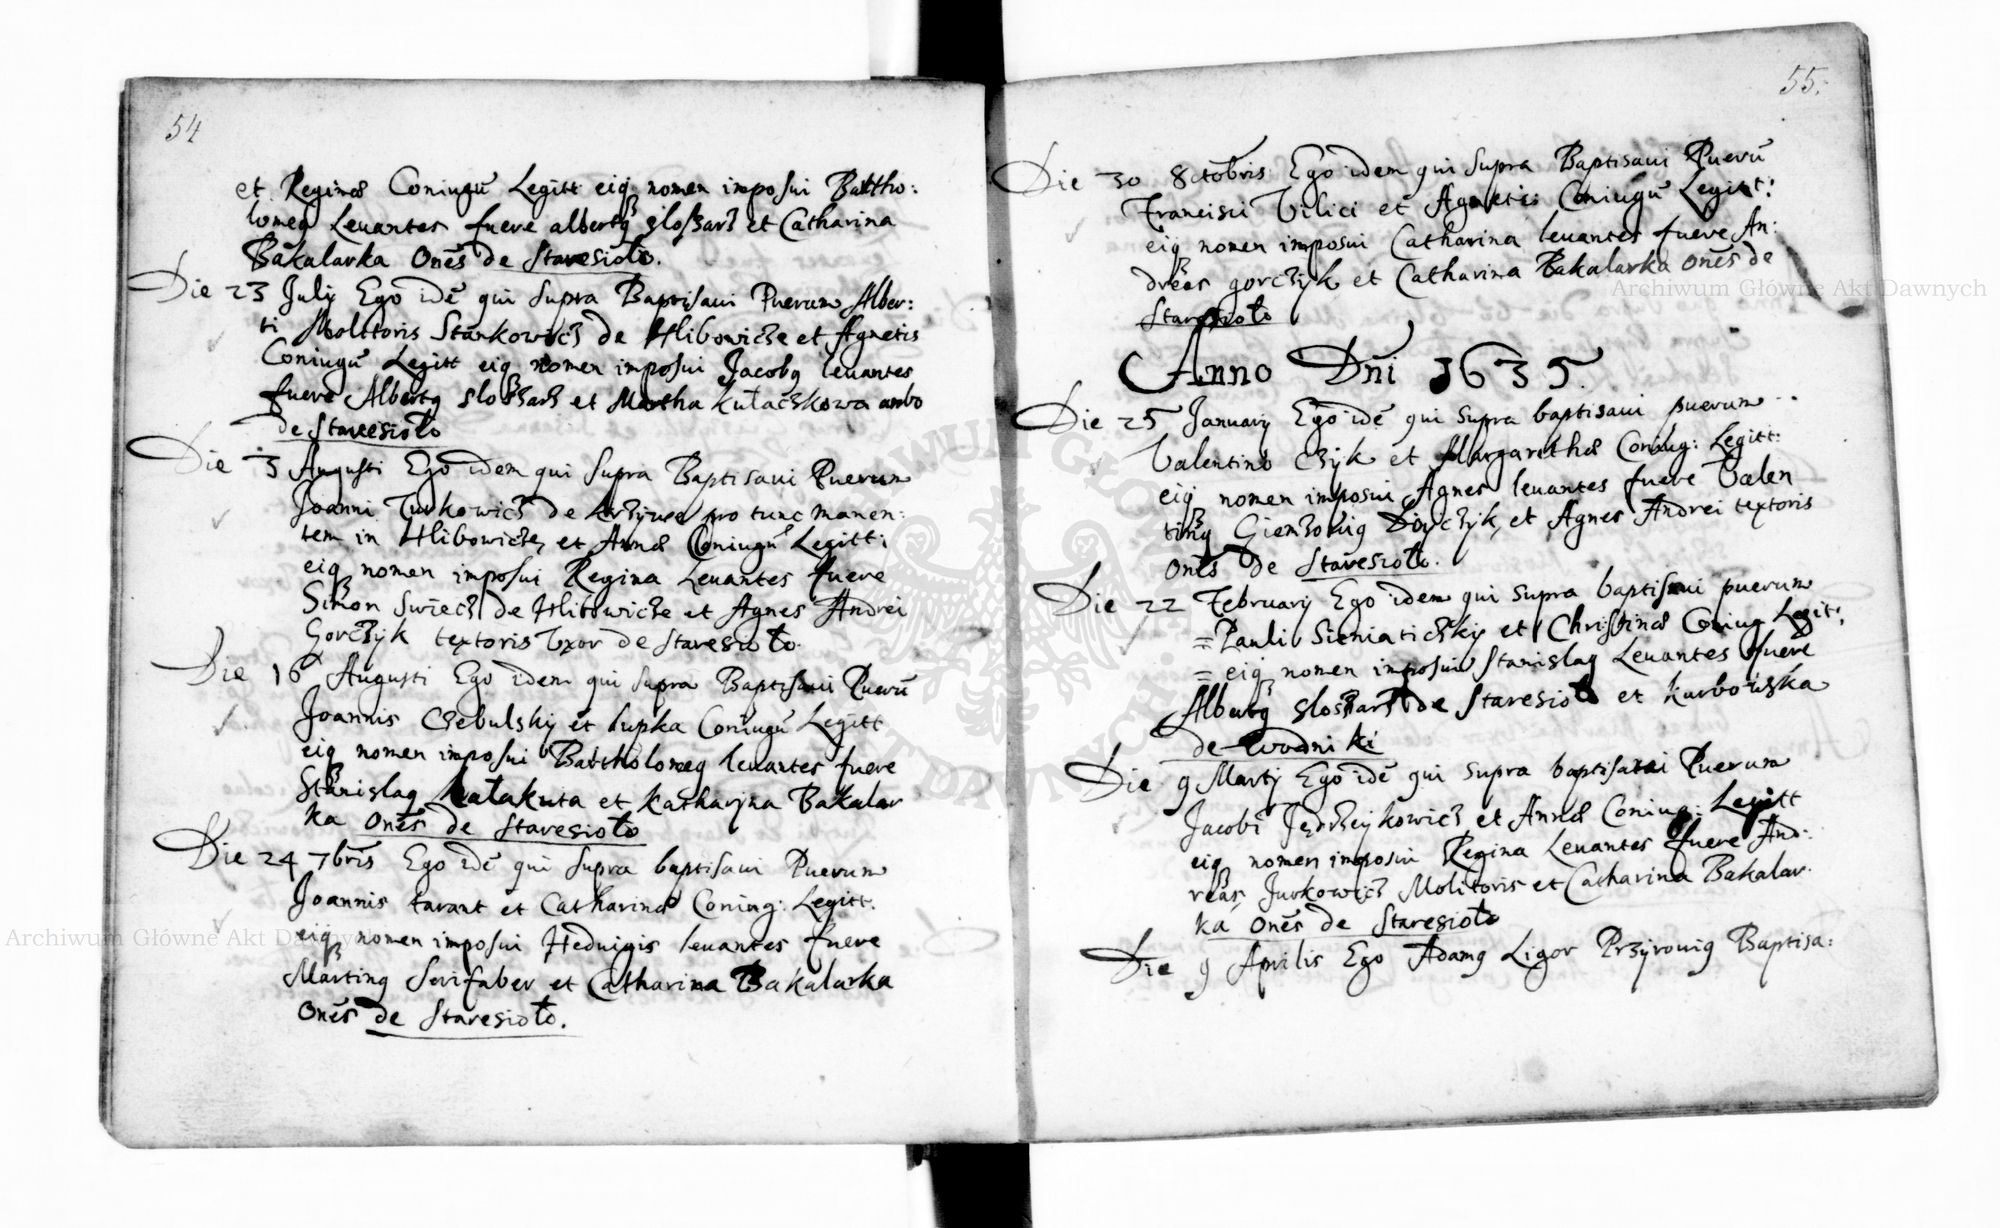 54
et Reginæ Coniugū Legitt eiq nomen imposui Bartho:
lomeq Leuantes fuere albertq slossarz et Catharina
Bakalarka Onēs de Staresioło.
Die 23 July Ego idē qui supra Baptisaui Puerum Alber:
ti Molitoris Stankowicz de Hlibowicze et Agnetis
Coniugū Legitt eiq nomen imposui Jacobq leuantes
fuere Albertq slossarz et Martha kułaczkowa ambo
de Staresioło
Die 3 Augusti Ego idem qui supra Baptisaui Puerum
Joanni Turkowicz de pro tunc manen:
tem in Hlibowicze et Annæ Coniugū Legitt:
eiq nomen imposui Regina Leuantes fuere
Simon Swiech de Hlibowicze et Agnes Andrei
Gorczyk textoris Vxor de Staresioło.
Die 16 Augusti Ego idem qui supra Baptisaui Puerū
Joannis Czebulskij et lupka Coniugū Legitt
eiq nomen imposui Bartholomeq leuantes fuere
Stanislaq kałakuta et katharyna Bakalar
ka Onēs de Staresioło
Die 24 7brīs Ego idē qui supra baptisaui Puerum
Joannis tarant et Catharinæ Coniug: Legitt.
eiq nomen imposui Hedvigis leuantes fuere
Martinq Serifaber et Catharina Bakalarka
Onēs de Staresioło.
55.
Die 30 8ctobris Ego idem qui supra Baptisaui Puerū
Francisci Vilici et Agnetis Coniugū Legitt:
eiq nomen imposui Catharina leuantes fuere An:
dreas gorczyk et Catharina Bakalarka onēs de
Staresioło
Anno Dn̄i 1635.
Die 25 January Ego idē qui supra baptisaui puerum
Valentino Czyk et Margarethæ Coniug: Legitt:
eiq nomen imposui Agnes leuantes fuere Valen
tinq et Agnes Andrei textoris
onēs de Staresioło.
Die 22 February Ego idem qui supra baptisaui puerum
= Pauli Sieniatickij et Christinæ Coniug Legit:
= eiq nomen imposui Stanislaq Leuantes fuere
Albertq slossarz de Staresioło et kurbowska
de Wodniki
Die 9 Martij Ego idē qui supra baptisaui Puerum
Jacobi et Annæ Coniug: Legitt
eiq nomen imposui Regina Leuantes fuere And:
reas Jurkowicz Molitoris et Catharina Bakalar.
ka onēs de Staresioło
Die 9 Aprilis Ego Adamq Ligor Przyrouiq Baptisa:
Archiwum Główne Akt Dawnych
Archiwum Główne Akt Dawnych
ARCHIWUM GŁÓWNE AKT DAWNYCH